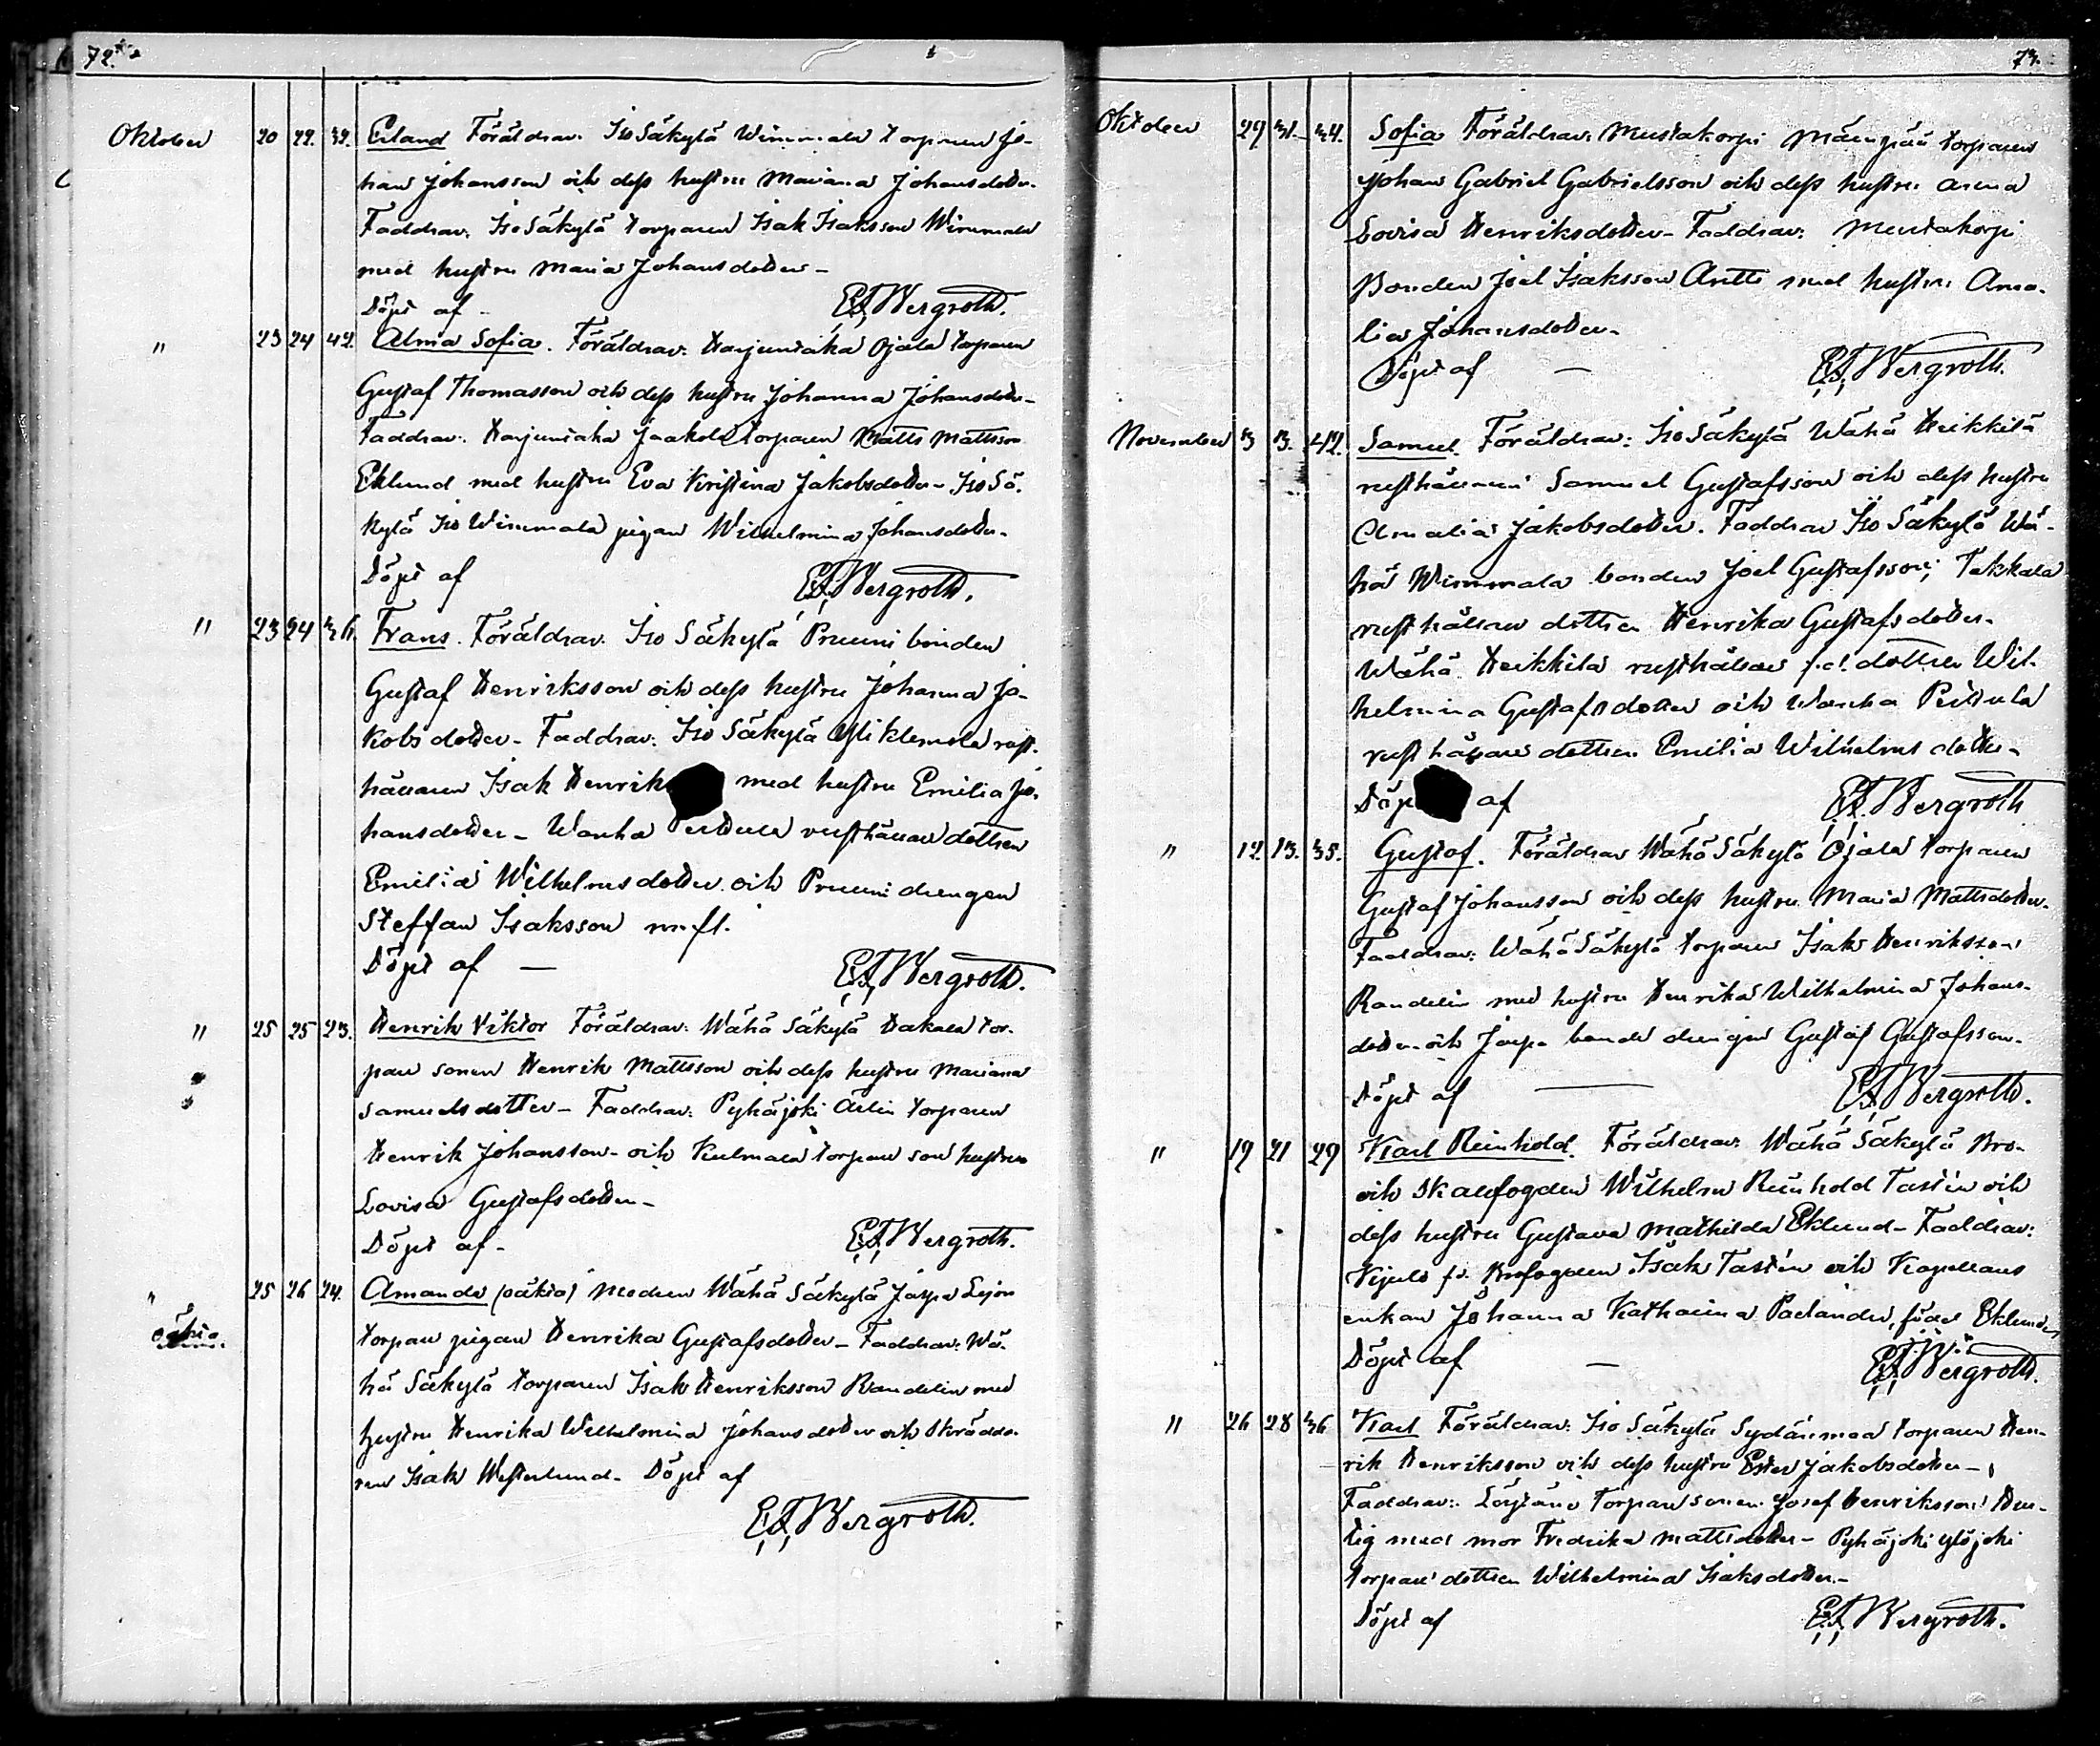 72.
Oktober 20 22. 32. Erland Föräldrar. Iso Säkylä Wimmala torparen Jo-
han Johansson och dess hustru Mariana Johansdotter.
Faddrar. Iso Säkylä torparen Isak Isaksson Wimmala
med hustru Maria Johansdotter -
Döpt af - E.F. Bergroth.
" 23 24 42. Alma Sofia. Föräldrar. Harjuntaka Ojala torparen
Gustaf Thomasson och dess hustru Johanna Johansdotter -
Faddrar. Harjuntaka Jaakola torparen Matts Mattsson
Eklund med hustru Eva Kristina Jakobsdotter - Iso Sä-
kylä Iso Wimmala pigan Wilhelmina Johansdotter.
Döpt af E.F. Bergroth.
" 23 24 36. Frans. Föräldrar. Iso Säkylä Pruuni bonden
Gustaf Henriksson och dess hustru Johanna Ja-
kobs dotter - Faddrar. Iso Säkylä Yliklemola rust-
hållaren Isak Henrik med hustru Emilia Jo-
hansdotter - Wanha rusthållare dottren
Emilia Wilhelmsdotter och Pruuni drengen
Steffan Isaksson
Döpt af — E.F. Bergroth.
" 25 25 23. Henrik Viktor Föräldrar. Wähä Säkylä Hakala tor-
pare sonen Henrik Mattsson och dess hustru Mariana
Samuelsdotter - Faddrar. Pyhäjoki torparen
Henrik Johansson - och Kulmala torpare son hustru
Lovisa Gustafsdotter -
Döpt af - E.F. Bergroth.
" 25 26 24. Amanda (oäkta) Modren Wähä Säkylä Jaspa
oäkta torpare pigan Henrika Gustafsdotter - Faddrar. Wä-
hä Säkylä torparen Isak Henriksson Randelin med
hustru Henrika Wilhelmina Johansdotter och Skrädda-
ren Isak Westerlund - Döpt af
E.F. Bergroth.
73.
Oktober 29 31. 34. Sofia Föräldrar. Mustakorpi Mäenpää torparen
Johan Gabriel Gabrielsson och dess hustru Anna
Lovisa Henriksdotter - Faddrar: Mustakorpi
Bonden Joel Isaksson Antti med hustru Ama-
lia Johansdotter -
Döpt af — E.F. Bergroth.
November 3 3. 42. Samuel. Föräldrar: Iso Säkylä Wähä Heikkilä
rusthållaren Samuel Gustafsson och dess hustru
Amalia Jakobsdotter. Faddrar Iso Säkylä Wä-
hä Wimmala bonden Joel Gustafsson; Takkala
rusthållare dottren Henrika Gustafsdotter -
Wähä Heikkilä rusthållare f.d. dottren Wil-
helmina Gustafsdotter och Wanha
rusthållare dottren Emilia Wilhelms dotter -
Döpt af E.F. Bergroth
" 12. 13. 35. Gustaf. Föräldrar Wähä Säkylä Ojala torparen
Gustaf Johansson och dess hustru Maria Mattsdotter.
Faddrar: Wähä Säkylä torparen Isak Henriksson
Randelin med hustru Henrika Wilhelmina Johans-
dotter - och Jaspa bonde drengen Gustaf Gustafsson.
Döpt af — E.F. Bergroth.
" 19 21 29 Karl Reinhold. Föräldrar. Wähä Säkylä Bro-
och Skallfogden Wilhelm Reinhold Tastin och
dess hustru Gustava Mathilda Eklund - Faddrar:
Kjulo f.d. Brofogden Isak Tastin och Kapellans
enkan Johanna Katharina Paelander, född Eklund
Döpt af — E.F. Bergroth.
" 26 28 36 Karl Föräldrar: Iso Säkylä Sydänmaa torparen Hen-
rik Henriksson och dess hustru Ester Jakobsdotter -
Faddrar: Löytäne torpare sonen Josef Henriksson
med mor Fredrika Mattsdotter - Pyhäjoki Ylöjoki
torpare dottren Wilhelmina Isaksdotter -
Döpt af E.F. Bergroth.